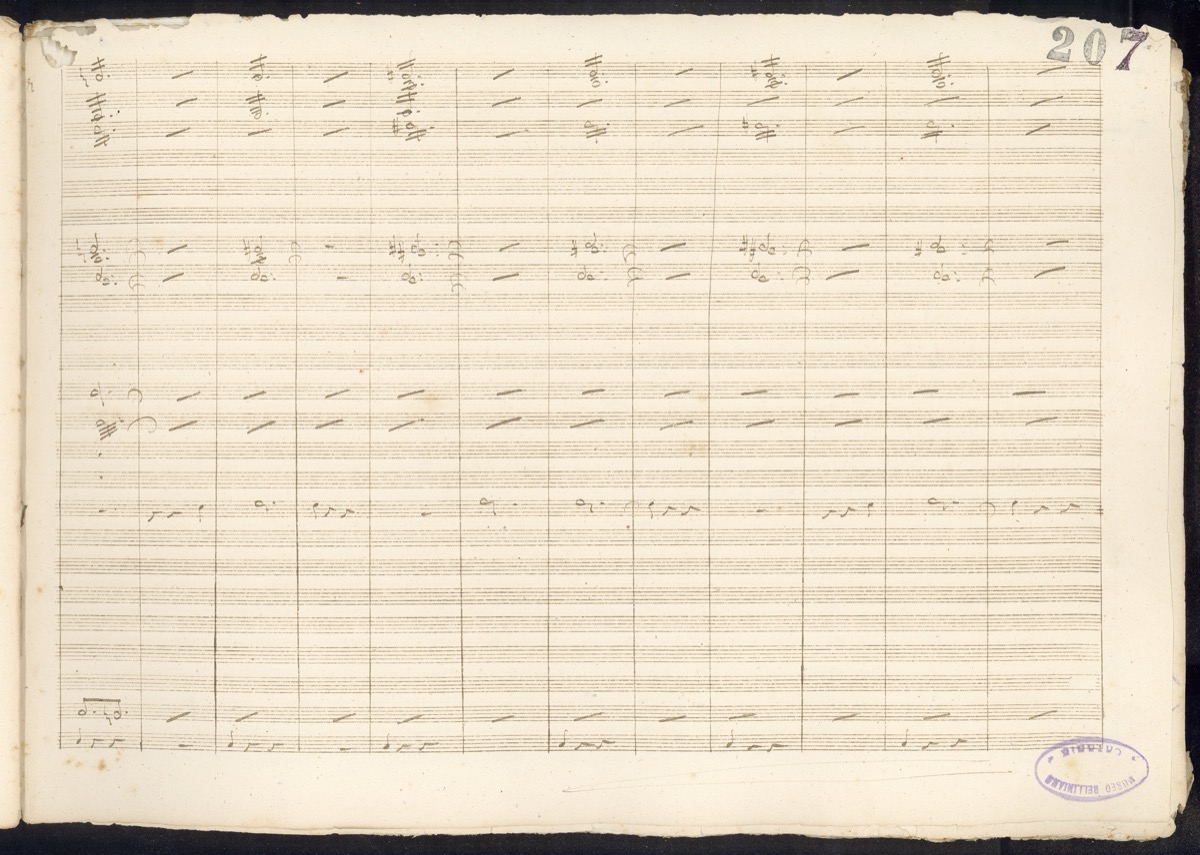 207
MUSEO BELLINIANO
CATANIA